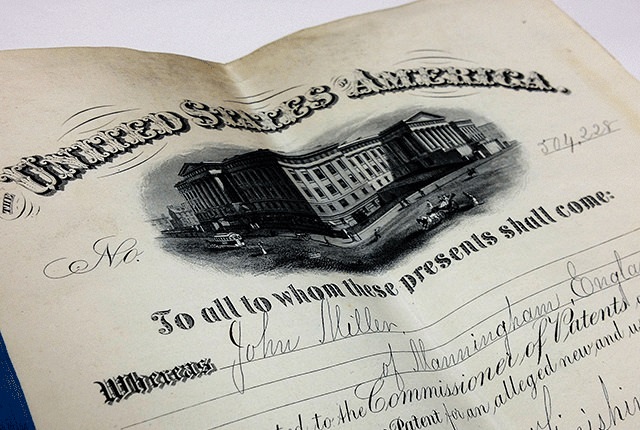 THE UNITED STATES OF AMERICA.
504,228
No.
To all to whom these presents shall come:
Whereas John Miller,
of Manningham, Engla
ted to the Commissioner of Patents
Patent for an alleged new and u